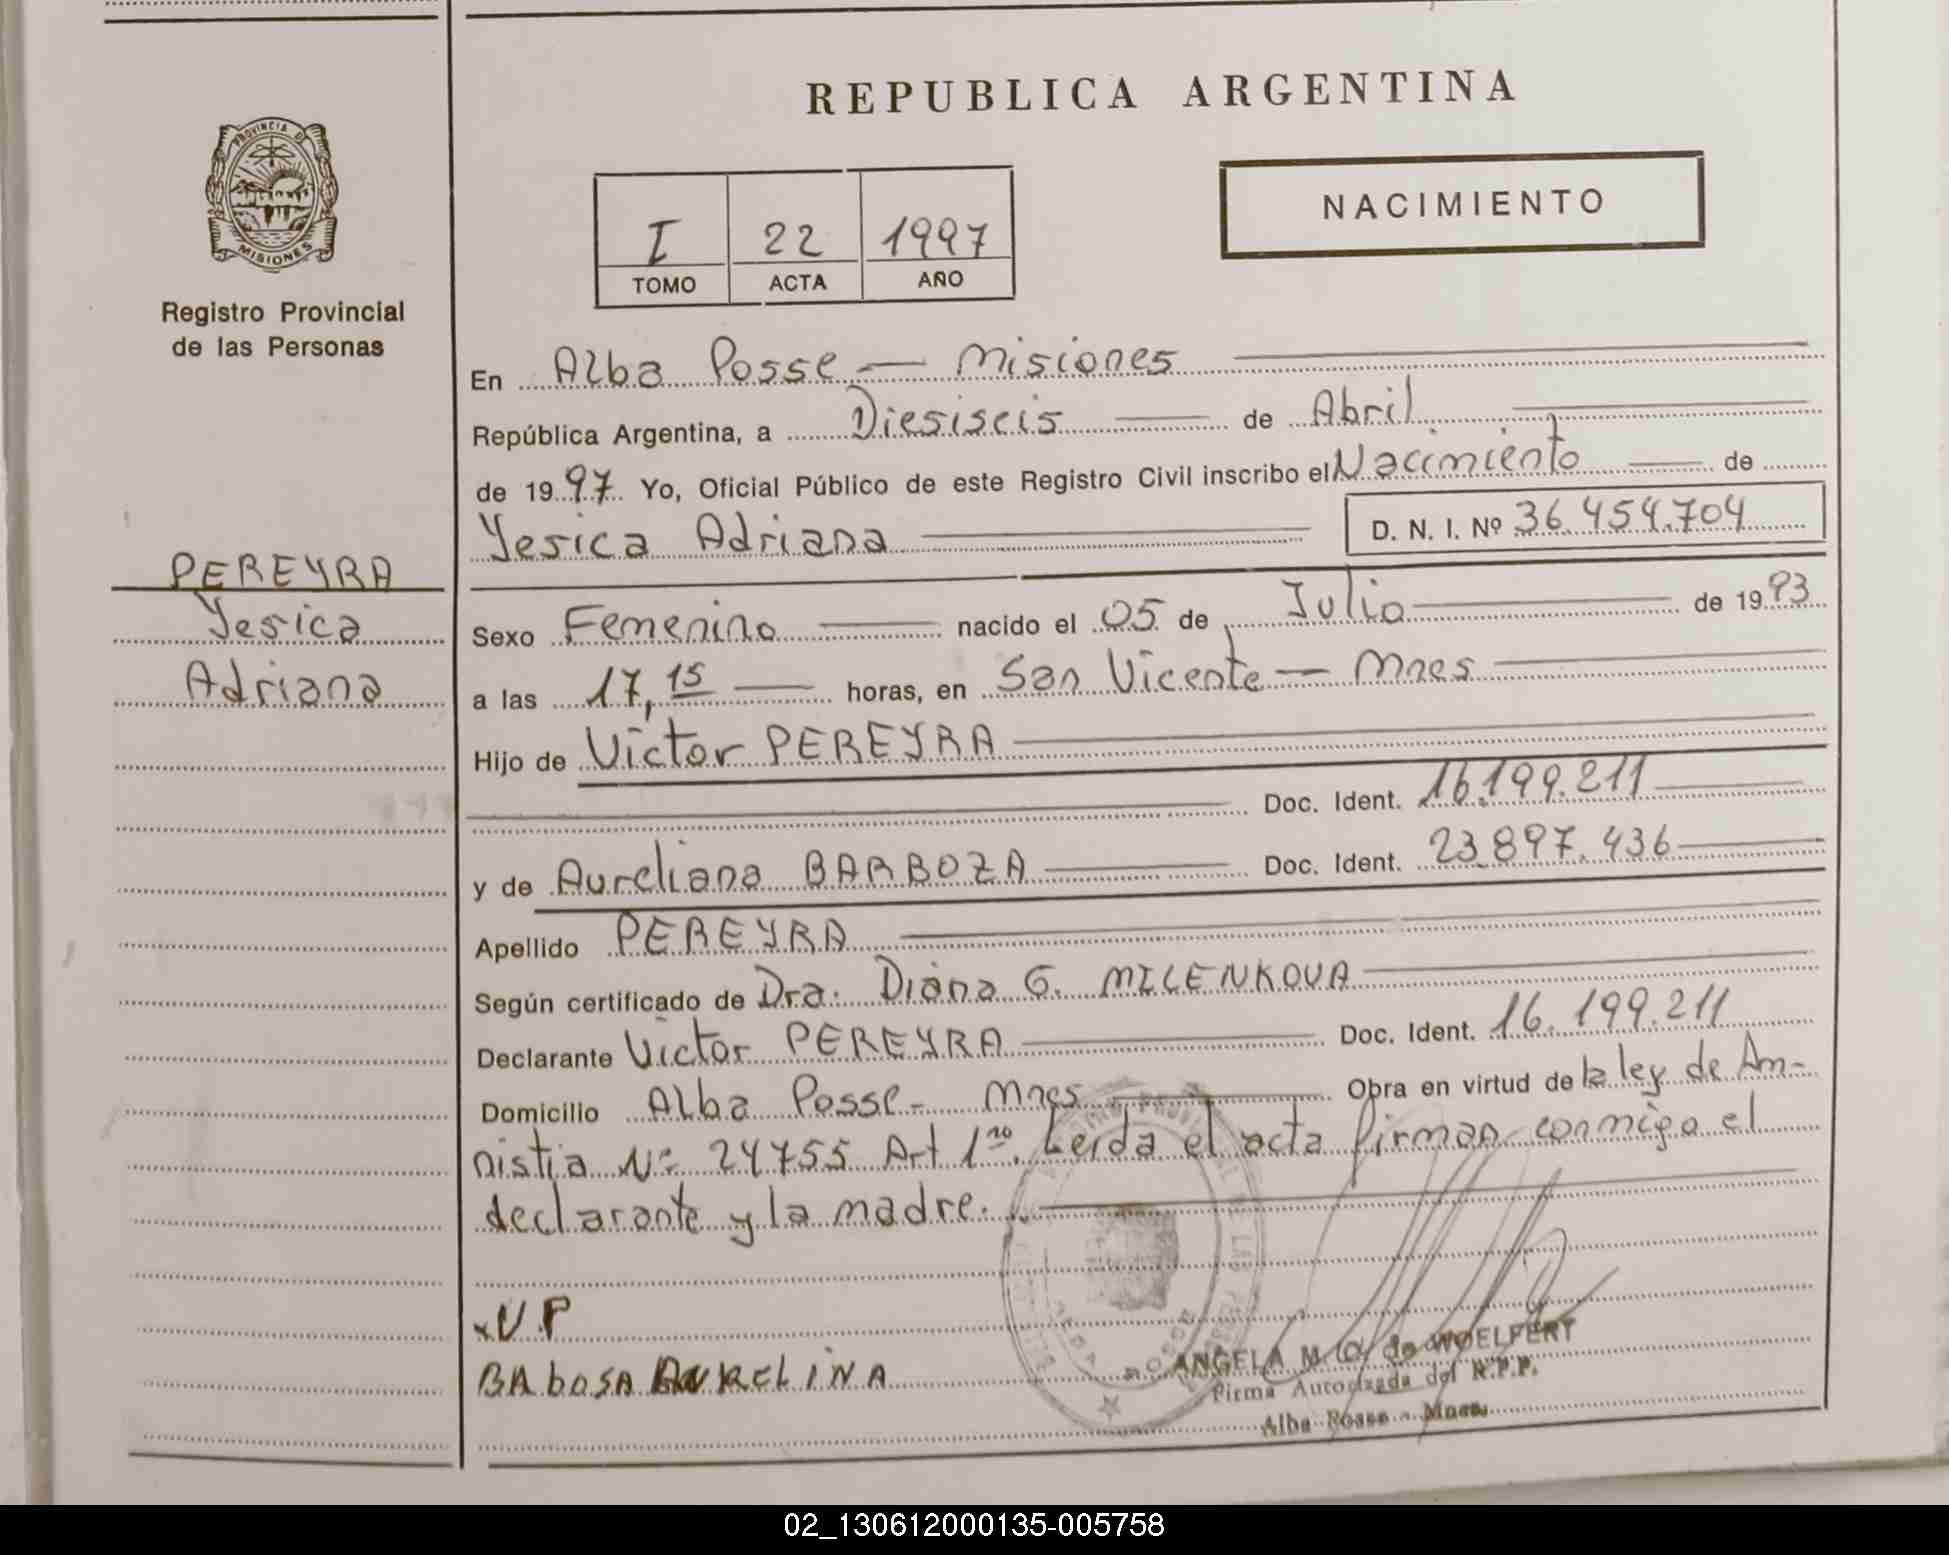 REPUBLICA ARGENTINA
PROVINCIA DE
MISIONES
Registro Provincial
de las Personas
I 22 1997
TOMO ACTA AÑO
NACIMIENTO
En Alba Posse - Misiones
República Argentina, a Diesiseis de Abril
de 1997 Yo, Oficial Público de este Registro Civil inscribo el Nacimiento de
Yesica Adriana D. N. I. Nº 36.454.704
PEREYRA
Yesica
Adriana
Sexo Femenino nacido el 05 de Julio de 1993
a las 17,15 horas, en San Vicente - Mnes
Hijo de Victor PEREYRA
Doc. Ident. 16.199.211
y de Aureliana BARBOZA Doc. Ident. 23.897.436
Apellido PEREYRA
Según certificado de Dra. Diana G. MILENKOVA
Declarante Victor PEREYRA Doc. Ident. 16.199.211
Domicilio Alba Posse - Mnes Obra en virtud de la ley de Am-
nistia Nº 24755 Art 1ro. Leida el acta firman conmigo el
declarante y la madre.
x V P
BAbOSA AURELINA
ANGELA M. de WOELFERT
Firma Autorizada del R.P.P.
Alba Posse - Mnes.
02_130612000135-005758